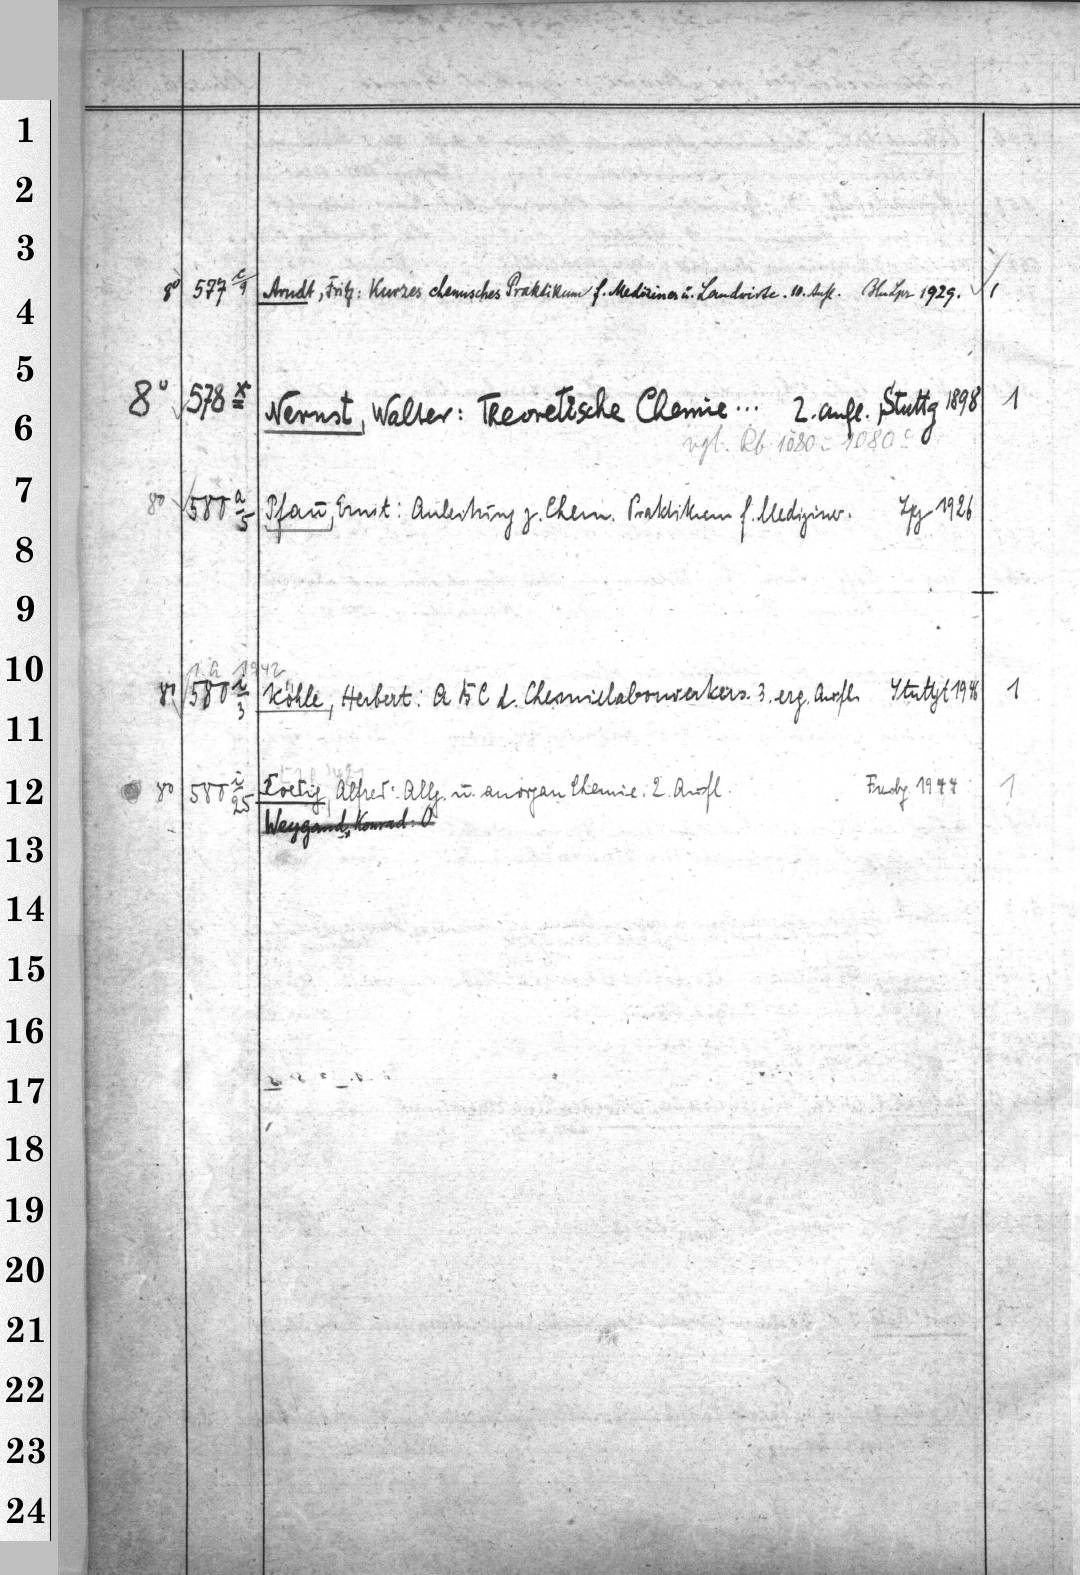 1
2
3
8° 577 c/9 Arndt, Fritz: Kurzes chemisches Praktikum f. Mediziner u. Landwirte. 10. Aufl. 1929. 1
4
5
8° 578 x Nernst, Walter: Theoretische Chemie ... 2. Aufl. Stuttg 1898 1
6
vgl. Rb 1080 - 1080 c
7
8° 580 a/5 Pfau, Ernst: Anleitung z. Chem. Praktikum f. Mediziner. Lpg 1926
8
9
10
1942
8° 580 i/3 Köhle, Herbert: A B C d. Chemielaborwerkers. 3. erg. Aufl. Stuttgt 1946 1
11
12
8° 580 i/25 Alfred: Allg. u. anorgan Chemie. 2. Aufl. 1944 1
Weygand, Konrad: O
13
14
15
16
17
18
19
20
21
22
23
24